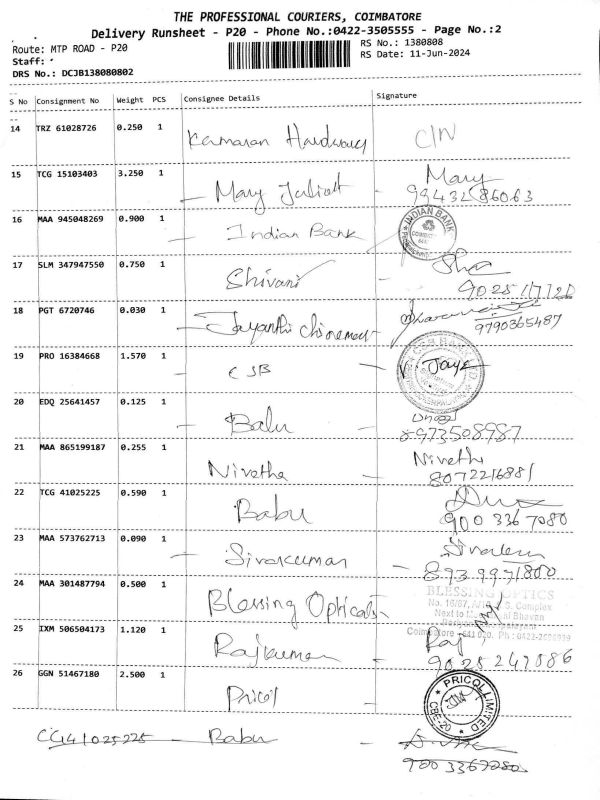 THE PROFESSIONAL COURIERS, COIMBATORE
Delivery Runsheet - P20 - Phone No.:0422-3505555 - Page No.:2
Route: MTP ROAD - P20
RS No.: 1380808
Staff:
RS Date: 11-Jun-2024
DRS No.: DCJB138080802
S No Consignment No Weight PCS Consignee Details Signature
14 TRZ 61028726 0.250 1 Hardwares C/N
15 TCG 15103403 3.250 1 Mary Juliat - Mary
99432 86063
16 MAA 945048269 0.900 1 Indian Bank INDIAN BANK
17 SLM 347947550 0.750 1 Shivani
18 PGT 6720746 0.030 1 Jayanthi
9790365487
19 PRO 16384668 1.570 1 CSB - Jaya
20 EDQ 25641457 0.125 1 Babu
8973508987
21 MAA 865199187 0.255 1 Nivetha - Nivetha
8072216881
22 TCG 41025225 0.590 1 Babu
900 336 7080
23 MAA 573762713 0.090 1 Sivakumar
24 MAA 301487794 0.500 1 Blessing Opticals
BLESSING OPTICS
S. Complex
Next to Bhavan
25 IXM 506504173 1.120 1 Rajkumar - Raj
Coimbatore - 641 020. Ph.:0422-
9025247086
26 GGN 51467180 2.500 1 Pricol PRICOL LIMITED CBE-20
CG41025225 - Babu
900 3367080